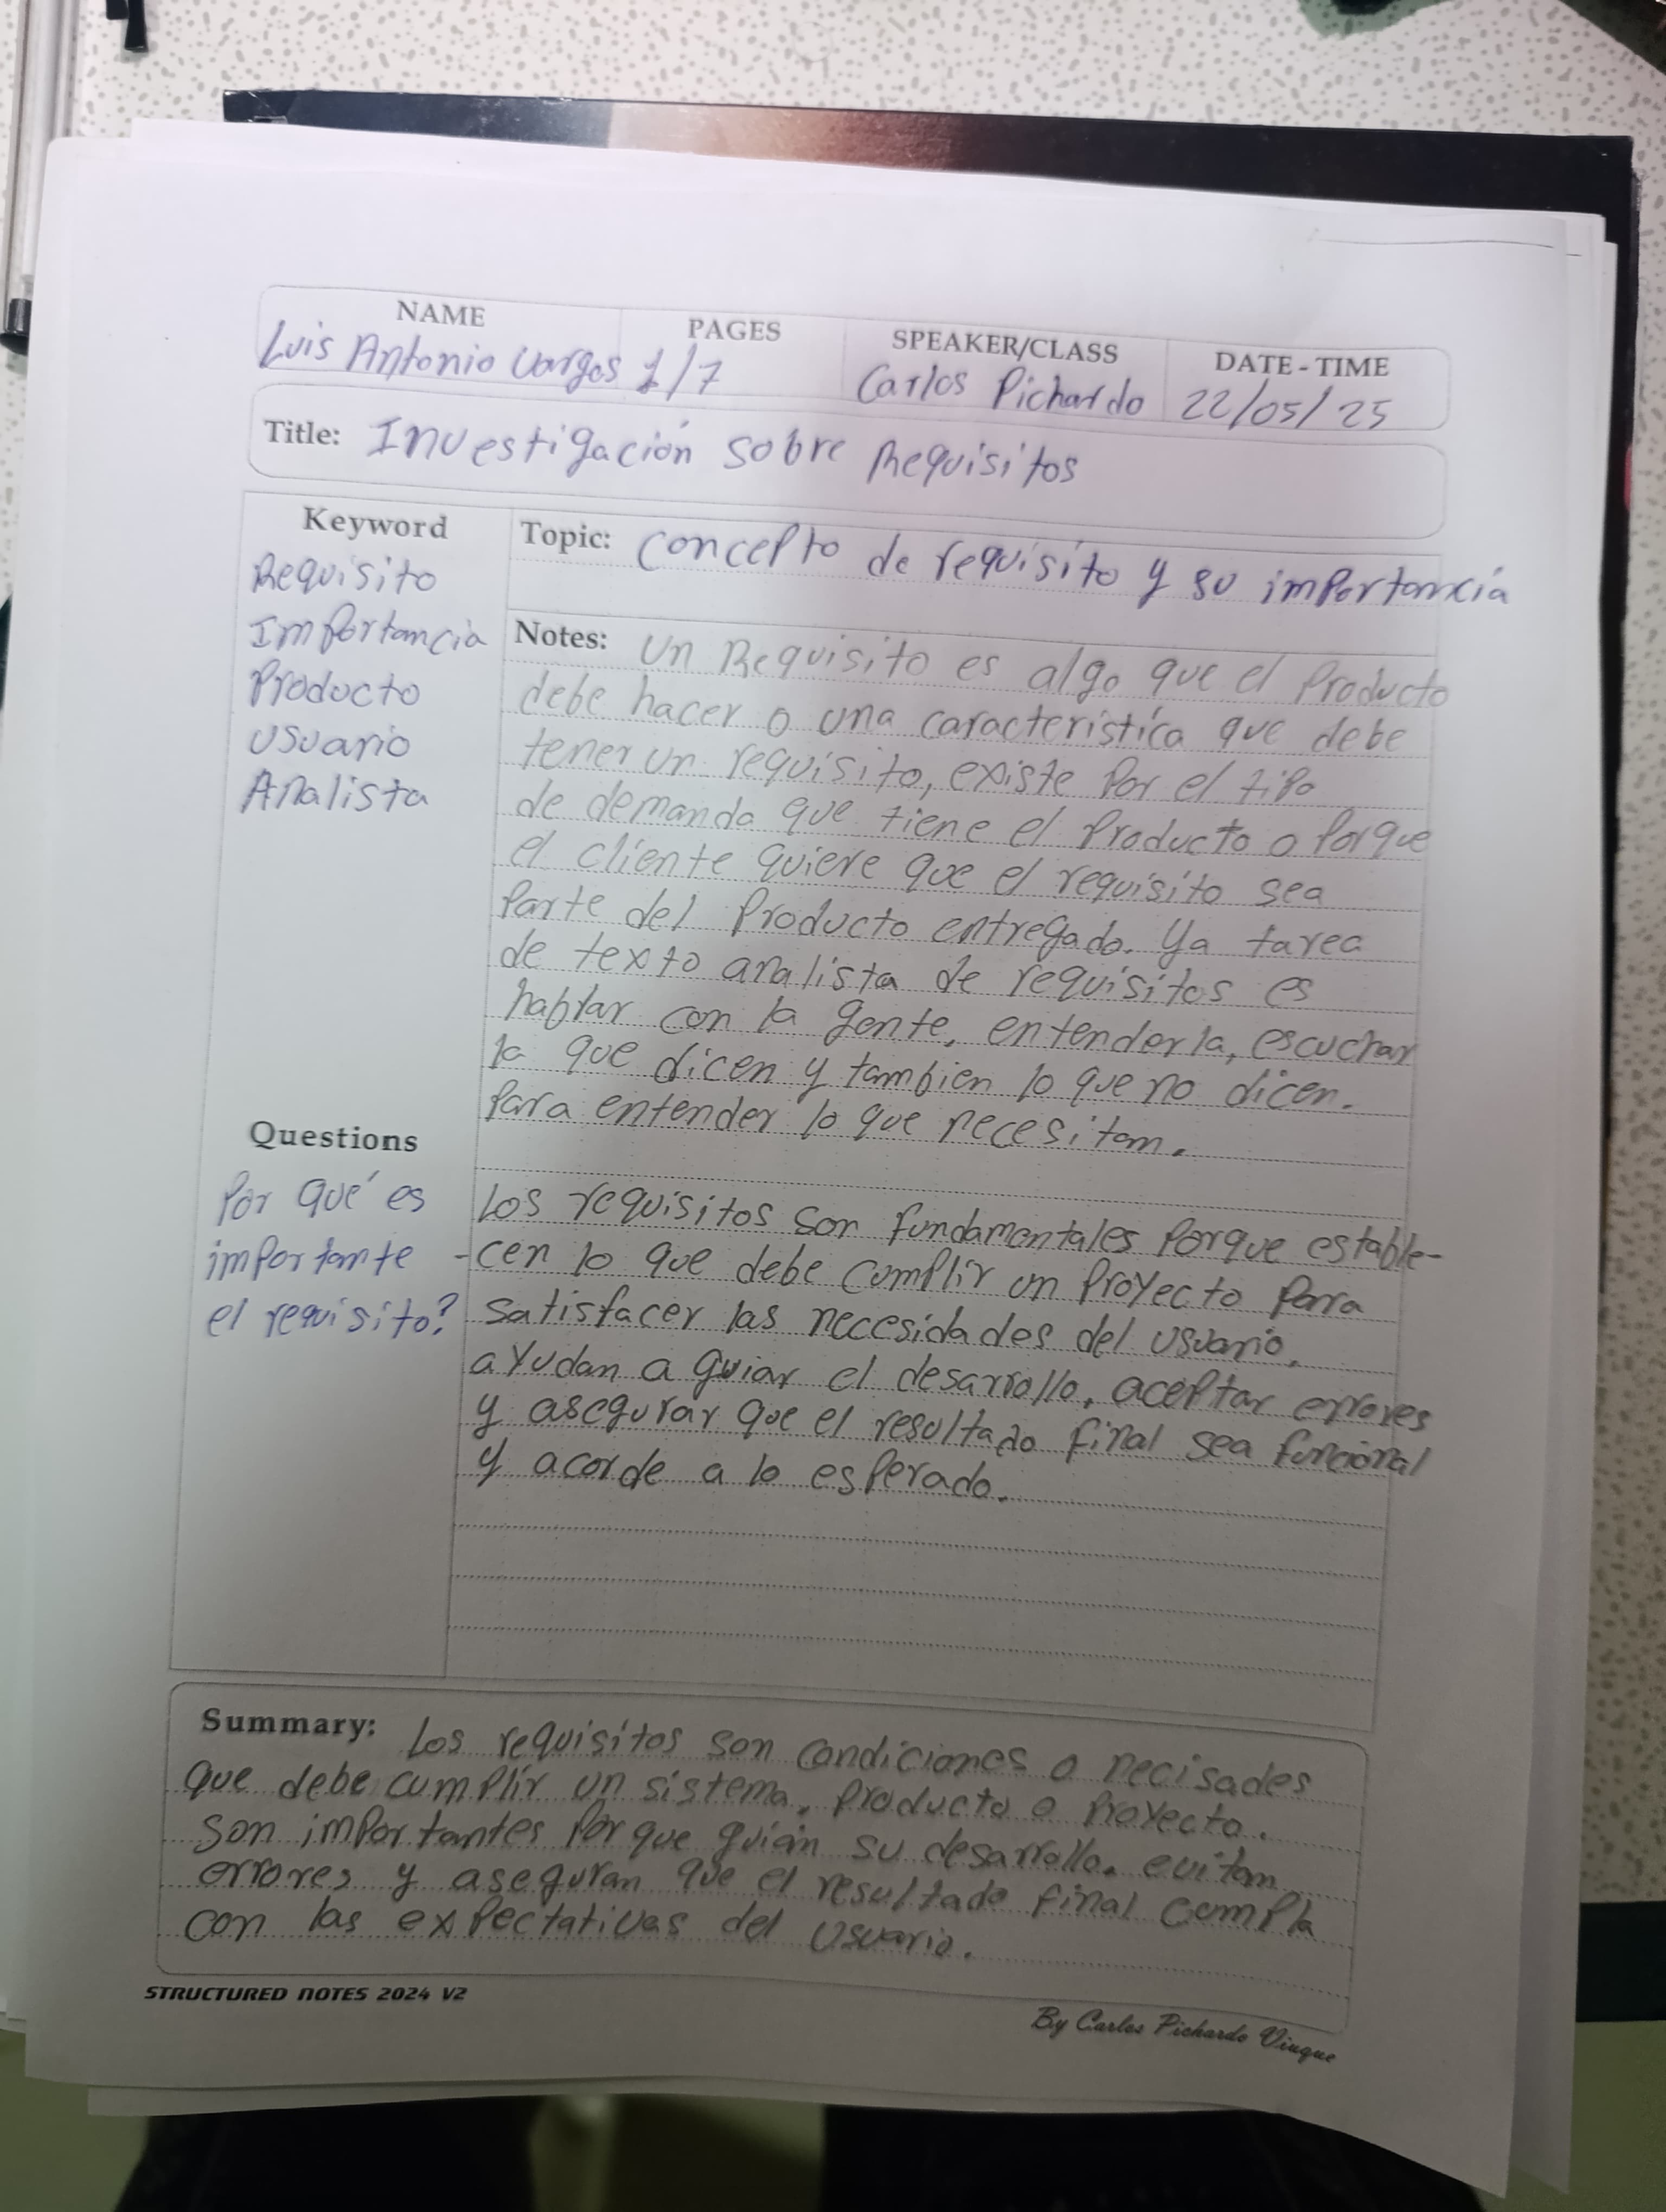 NAME PAGES SPEAKER/CLASS DATE - TIME
Luis Antonio Vargas 1/7 Carlos Pichardo 22/05/25
Title: Investigación sobre Requisitos
Keyword
Requisito
Importancia
Producto
Usuario
Analista
Topic: concepto de requisito y su importancia
Notes: Un Requisito es algo que el Producto
debe hacer o una característica que debe
tener un requisito, existe por el tipo
de demanda que tiene el Producto o Porque
el cliente quiere que el requisito sea
Parte del Producto entregado. Ya tarea
de texto analista de requisitos es
hablar con la gente, entenderla, escuchar
lo que dicen y tambien lo que no dicen.
Para entender lo que necesitan.
Questions
Por qué es
importante
el requisito?
Los requisitos son fundamentales Porque estable-
-cen lo que debe cumplir un Proyecto para
satisfacer las necesidades del usuario,
ayudan a guiar el desarrollo, aceptar errores
y asegurar que el resultado final sea funcional
y acorde a lo esperado.
Summary: Los requisitos son condiciones o necisades
que debe cumplir un sistema, Producto o Proyecto.
Son importantes Porque guian su desarrollo. evitan
errores y aseguran que el resultado final cumpla
con las expectativas del Usuario.
STRUCTURED NOTES 2024 V2
By Carlos Pichardo Viuque